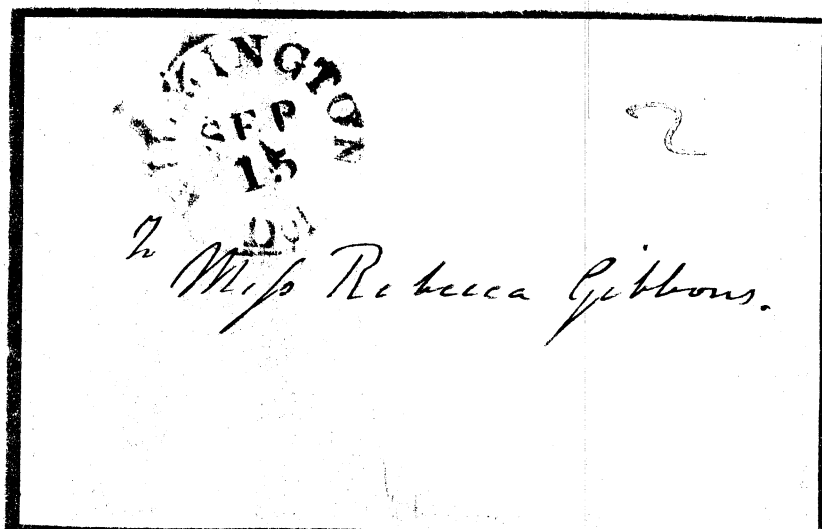 WILMINGTON
SEP
15
Del
2
2
Miss Rebecca Gibbons.